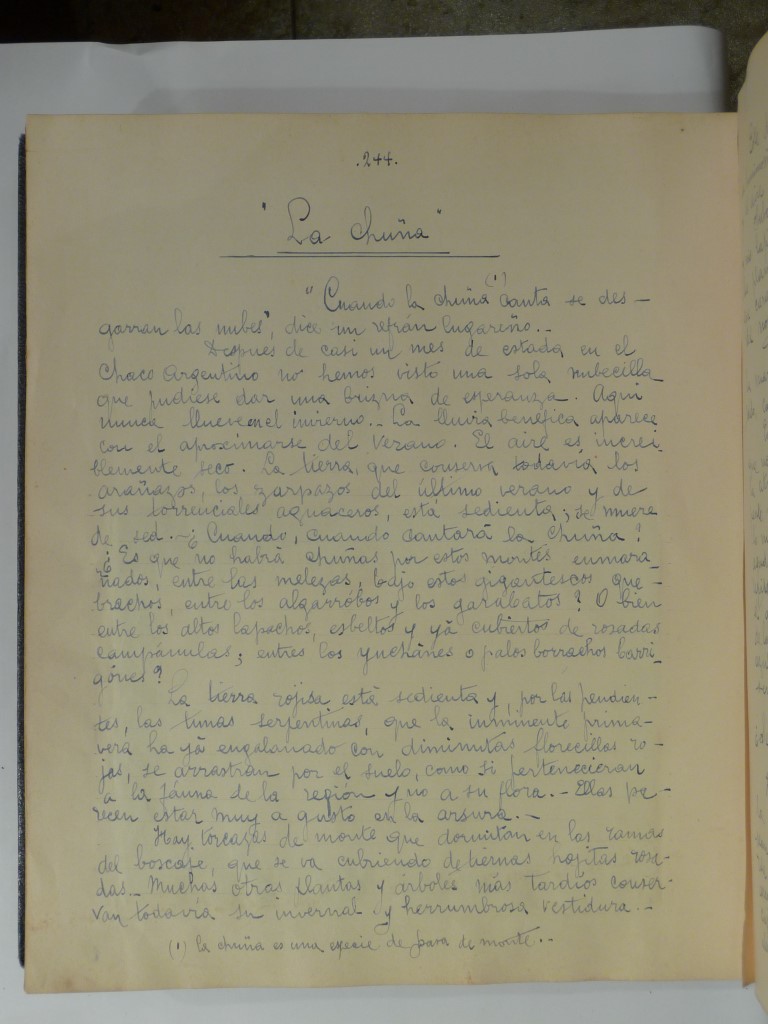 .244.
"La chuña"
"Cuando la chuña (1) canta se des-
garran las nubes", dice un refrán lugareño.-
Después de casi un mes de estada en el
Chaco Argentino no hemos visto una sola nubecilla
que pudiese dar una brizna de esperanza. Aquí
nunca llueve en el invierno.- La lluvia benéfica aparece
con el aproximarse del verano. El aire es increi-
blemente seco. La tierra, que conserva todavía los
arañazos, los zarpazos del último verano y de
sus torrenciales aguaceros, está sedienta; se muere
de sed.-¿Cuando, cuando cantará la chuña?
¿Es que no habrá chuñas por estos montes enmara-
ñados, entre las melezas, bajo estos gigantescos que-
brachos, entre los algarrobos y los garabatos? O bien
entre los altos lapachos, esbeltos y yá cubiertos de rosadas
campánulas; entres los yuchanes o palos borrachos barri-
gónes?
La tierra rojisa está sedienta y, por las pendien-
tes, las tunas serpentinas, que la inminente prima-
vera ha yá engalanado con diminutas florecillas ro-
jas, se arrastran por el suelo, como si pertenecieran
a la fauna de la región y no a su flora.- Ellas pa-
recen estar muy a gusto en la arsura.-
Hay torcazas de monte que dormitan en las ramas
del boscaje, que se va cubriendo de tiernas hojitas rosa-
das.- Muchas otras plantas y árboles más tardíos conser-
van todavía su invernal y herrumbrosa vestidura.-
(1) la chuña es una especie de pava de monte.-